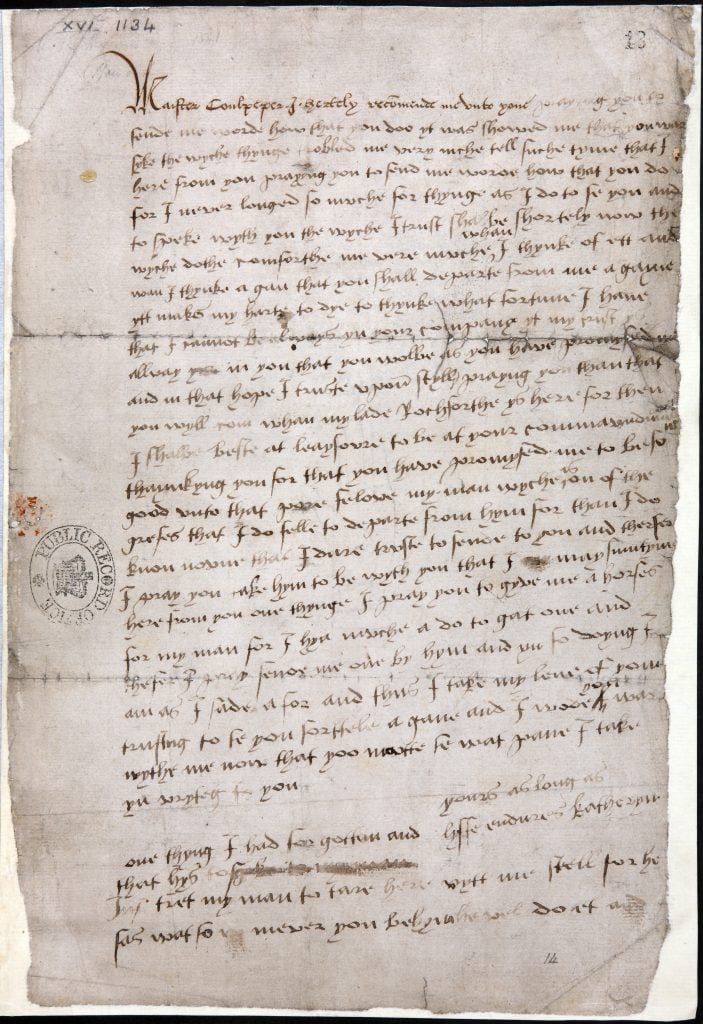 XVI 1134
13
Maister Coulpeper I hertely recōmende me unto youe praying you to
sende me worde how that you doo yt was showed me that you was
seke the wyche thynge trobled me very muche tell suche tyme that I
here from you praying you to send me worde how that you do
for I never longed so muche for thynge as I do to se you and
to speke wyth you the wyche I trust shalbe shortely now the
wyche dothe comforthe me very muche whan I thynke of ett and
wan I thynke agan that you shall departe from me agane
ytt makes my harte to dye to thynke what fortune I have
that I cannot be always yn your company yt my trust ys
allway in you that you wolbe as you have promysed me
and in that hope I truste upon styll prayng you than that
you wyll com whan my lade Rochforthe ys here for then
I shalbe beste at leaysoure to be at your commaundmant
thaynkyng you for that you have promysed me to be so
good unto that pore felowe my man wyche is on of the
grefes that I do felle to departe from hym for than I do
know noone that I dare truste to sende to you and therfor
I pray you take hym to be wyth you that I may sumtym
here from you one thynge I pray you to gyve me a horse
for my man for I hyd muche a do to gat one and
thefer I pray sende me one by hym and yn so doying I
am as I sade afor and thus I take my leve of you
trusting to se you shorttele agane and I wode you war
wythe me now that yoo motte se wat pane I take
yn wryteg to you
yours as long as
lyffe endures Katheryn
one thyng I had forgotten and
that hys to
tret my man to tare here wytt me still for he
sas wat so mever you bed hym he wel do et and
14
PUBLIC RECORD OFFICE